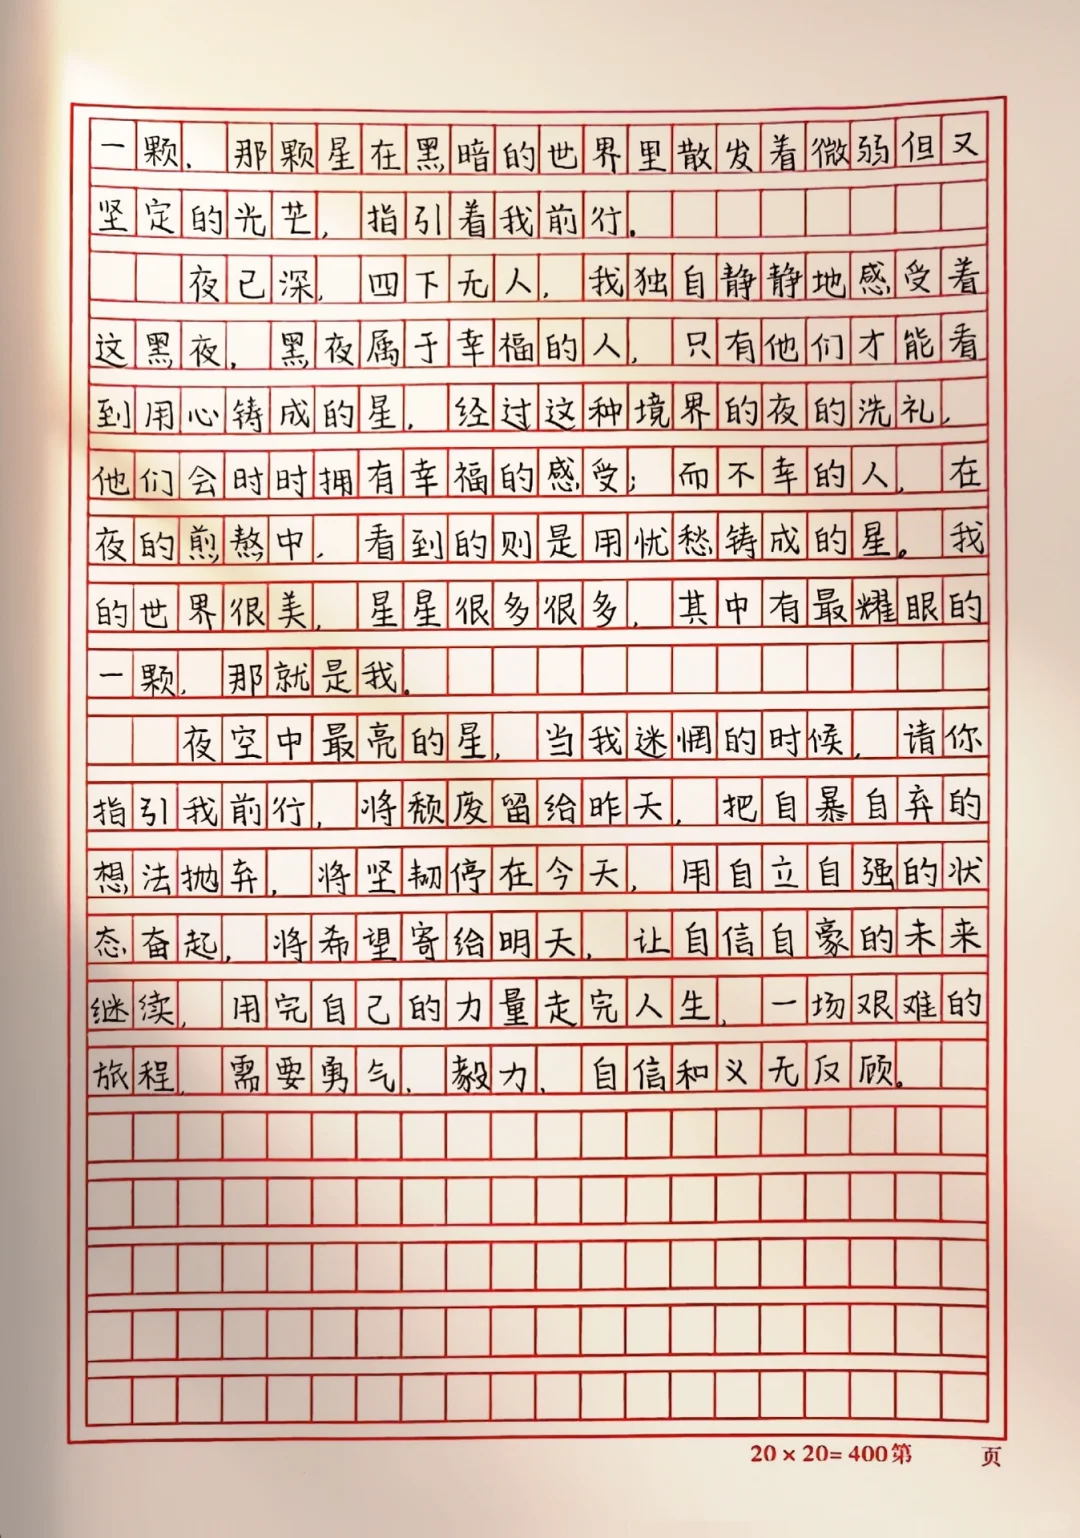 一颗，那颗星在黑暗的世界里散发着微弱但又
坚定的光芒，指引着我前行。
夜已深，四下无人，我独自静静地感受着
这黑夜，黑夜属于幸福的人，只有他们才能看
到用心铸成的星，经过这种境界的夜的洗礼，
他们会时时拥有幸福的感受；而不幸的人，在
夜的煎熬中，看到的则是用忧愁铸成的星。我
的世界很美，星星很多很多，其中有最耀眼的
一颗，那就是我。
夜空中最亮的星，当我迷惘的时候，请你
指引我前行，将颓废留给昨天，把自暴自弃的
想法抛弃，将坚韧停在今天，用自立自强的状
态奋起，将希望寄给明天，让自信自豪的未来
继续，用完自己的力量走完人生，一场艰难的
旅程，需要勇气、毅力、自信和义无反顾。
20×20=400第 页